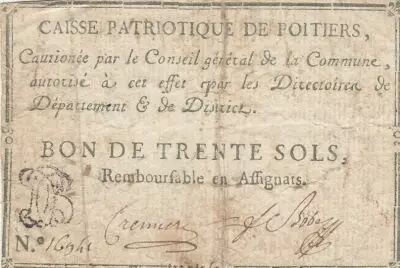 CAISSE PATRIOTIQUE DE POITIERS,
Cautionée par le Conseil général de la Commune,
autorisé à cet effet par les Directoires de
Département & de District.
BON DE TRENTE SOLS,
Remboursable en Assignats.
N.º